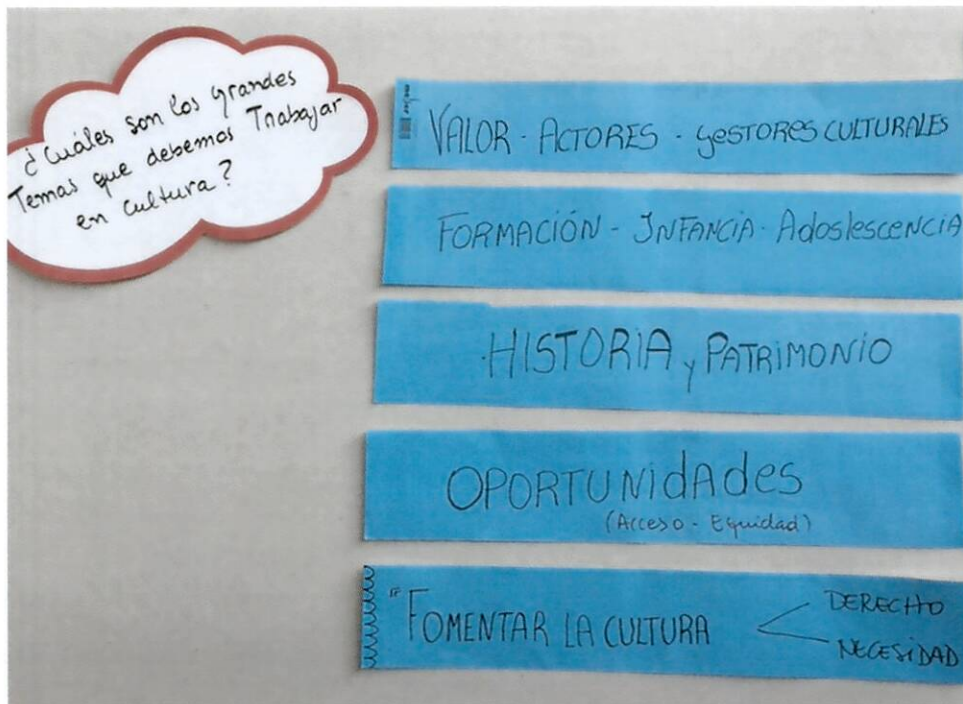 ¿Cuáles son los grandes
Temas que debemos Trabajar
en cultura?
VALOR - ACTORES - gESTORES CULTURALES
FORMACIÓN - INFANCIA - AdoslescenciA
HISTORIA y PATRIMONIO
OPORTUNidAdes
(Acceso - Equidad)
"FOMENTAR LA CULTURA
DERECHO
NECESIDAD